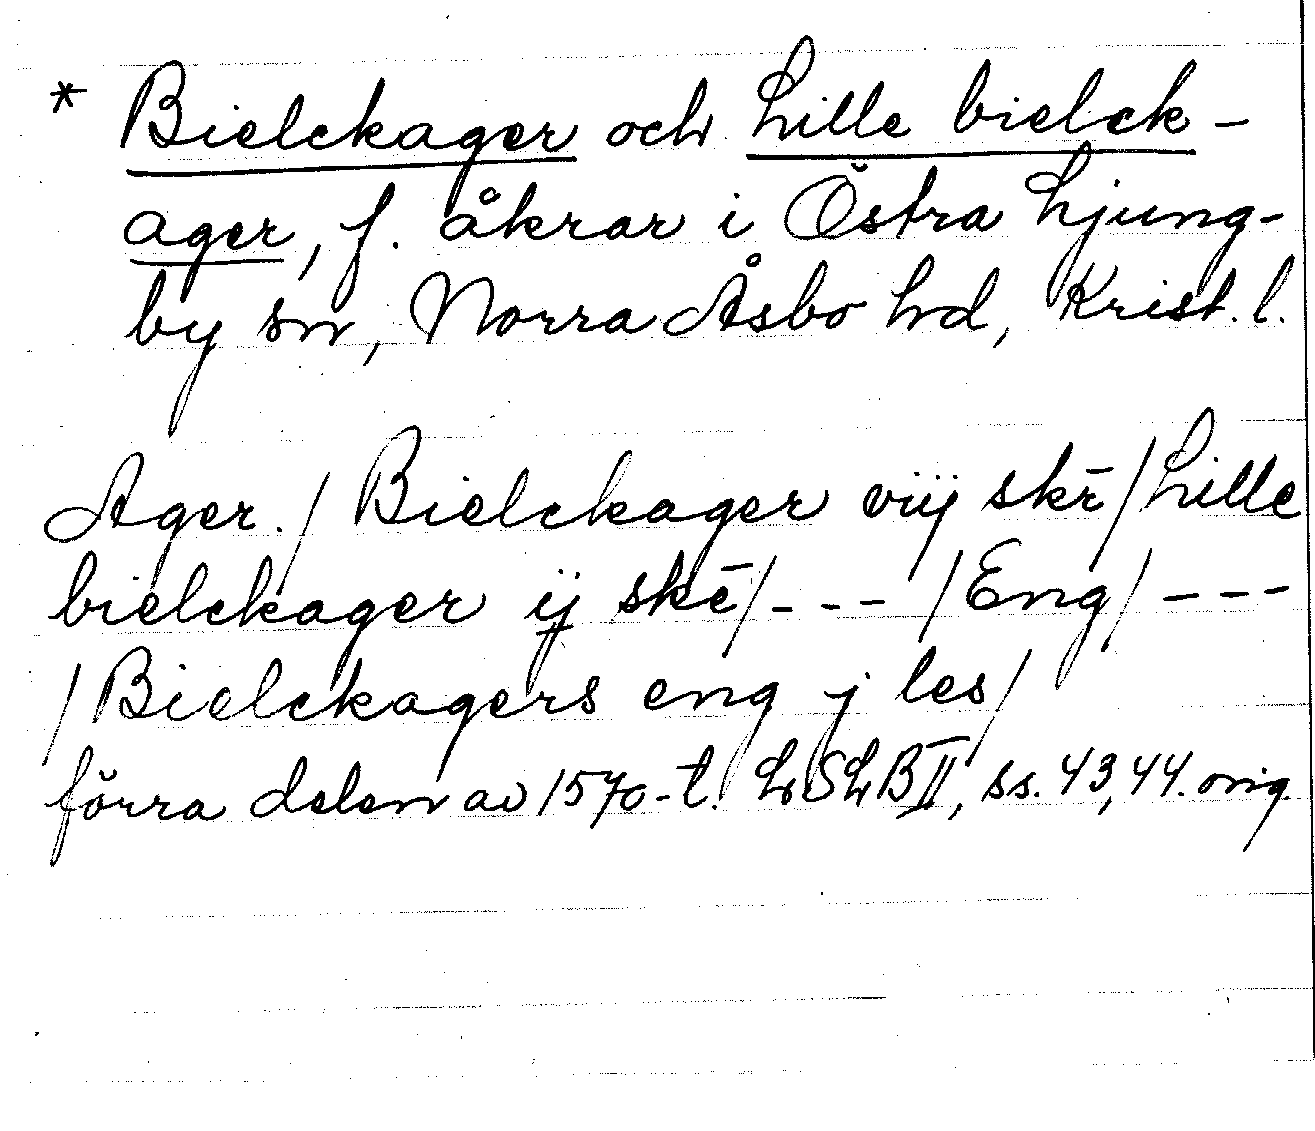 * Bielckager och Lille bielck-
ager, f. åkrar i Östra Ljung-
by sn, Norra Åsbo hd, Krist. l.
Ager./ Bielckager viij skē/Lille
bielckager ij skē/--- /Eng/ ---
/Bielckagers eng j les/
förra delen av 1570-t. LSLB II, ss. 43,44. orig.